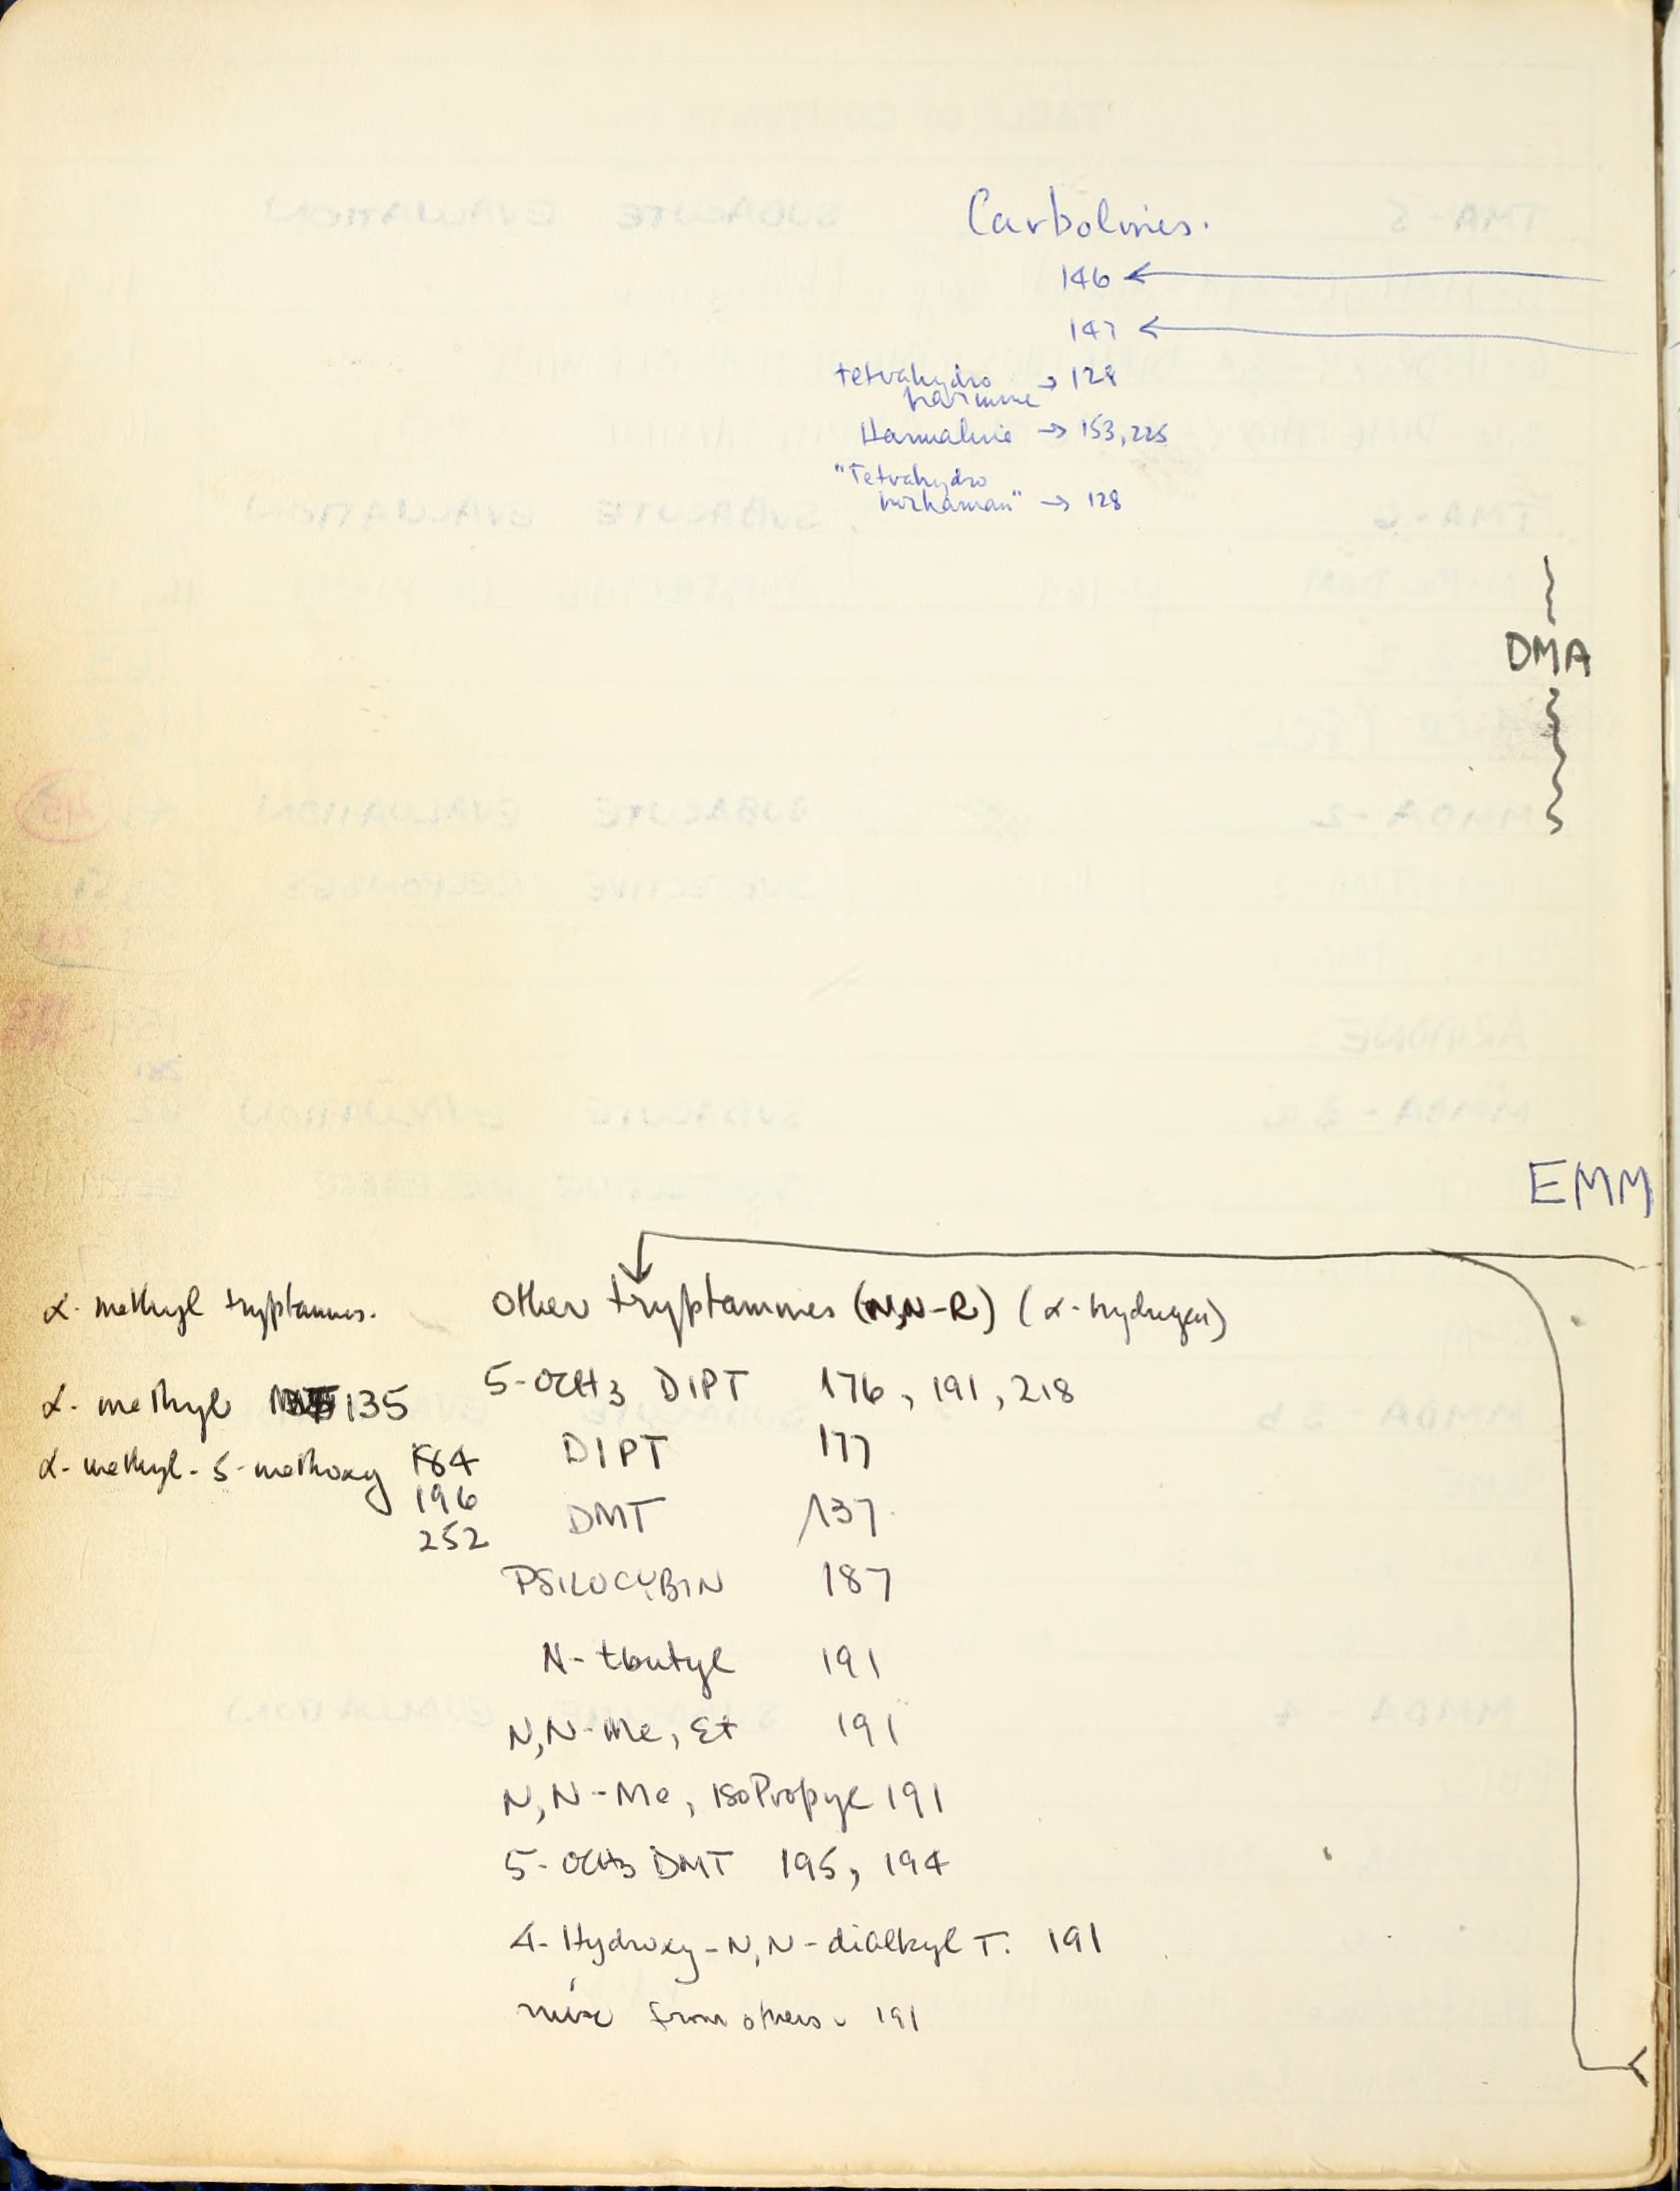 Carbolines.
146 ←
147 ←
tetrahydro
harmine → 128
Harmaline → 153, 225
"Tetrahydro
norharman" → 128
DMA
EMM
α-methyl tryptamines.
α-methyl 135
α-methyl-5-methoxy 184
196
252
Other tryptamines (N,N-R) (α-hydrogen)
5-OCH3 DIPT 176, 191, 218
DIPT 177
DMT 137
PSILOCYBIN 187
N-tbutyl 191
N,N-Me, Et 191
N,N-Me, IsoPropyl 191
5-OCH3 DMT 195, 194
4-Hydroxy-N,N-dialkyl T. 191
from others 191